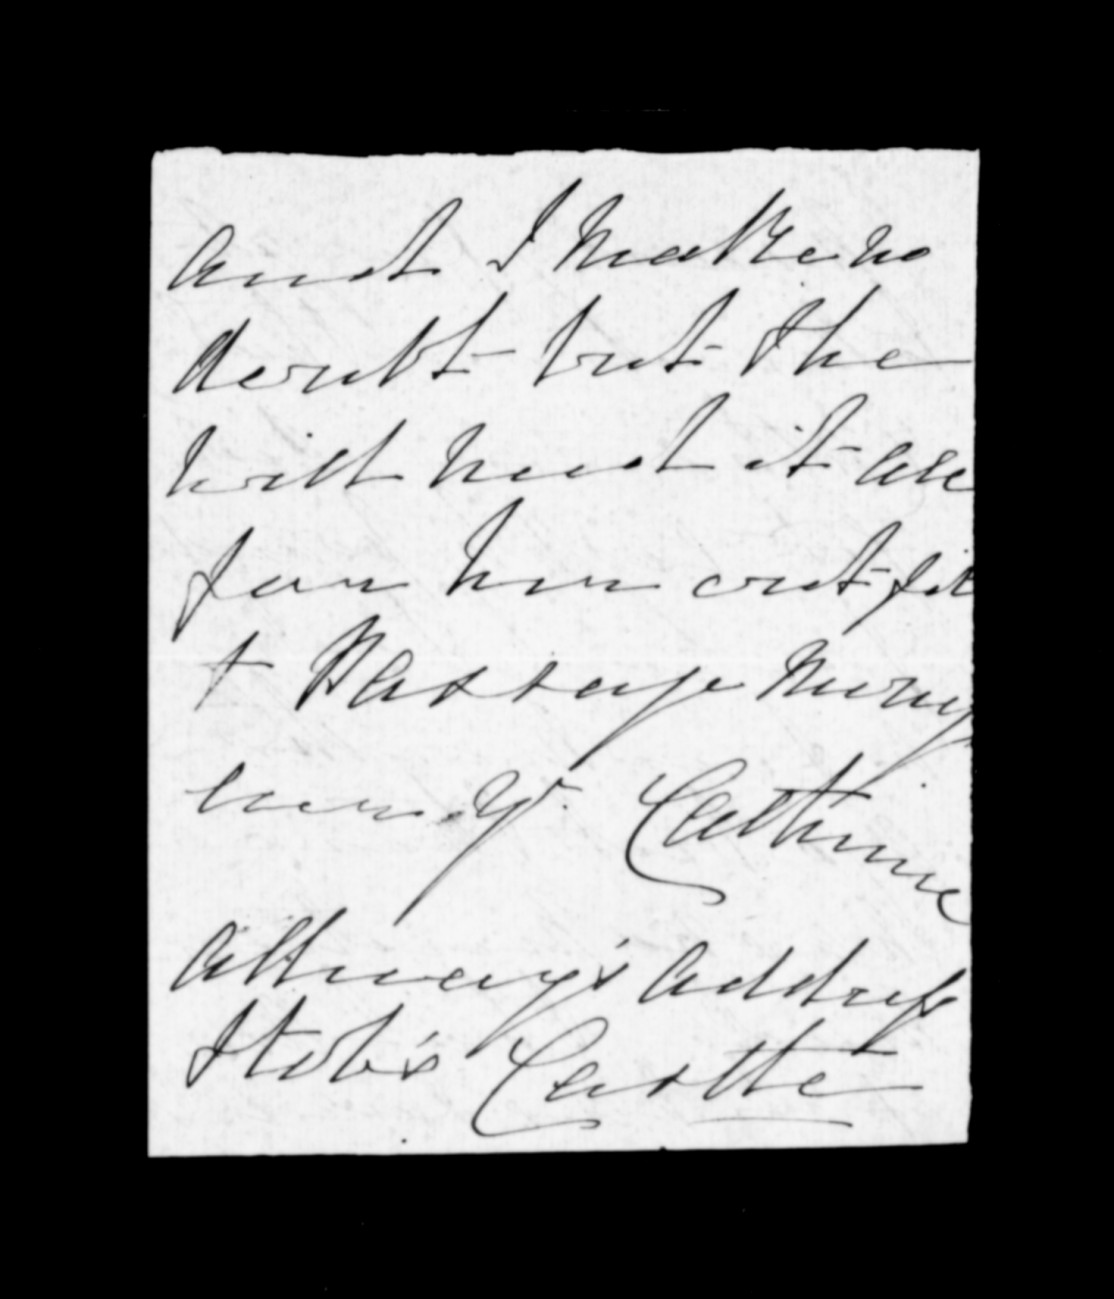 and I make no
doubt but she
will need it all
for her out fit
+ Passage Money
ever Yr Cathrine
Allways address
Stobs Castle